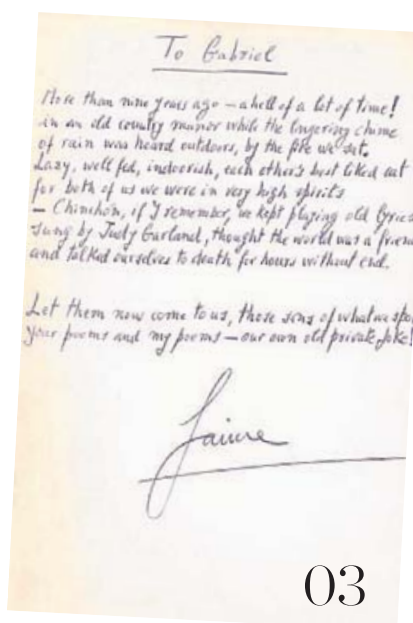 To Gabriel
More than nine years ago — a hell of a lot of time!
in an old country manor while the lingering chime
of rain was heard outdoors, by the fire we sat.
Lazy, well fed, indoorish, each other's best liked cat
for both of us we were in very high spirits
— Chinchón, if I remember, we kept playing old lyrics
sung by Judy Garland, thought the world was a frien
and talked ourselves to death for hours without end.
Let them now come to us, those sons of what we spo
your poems and my poems — our own old private joke!
Jaime
03